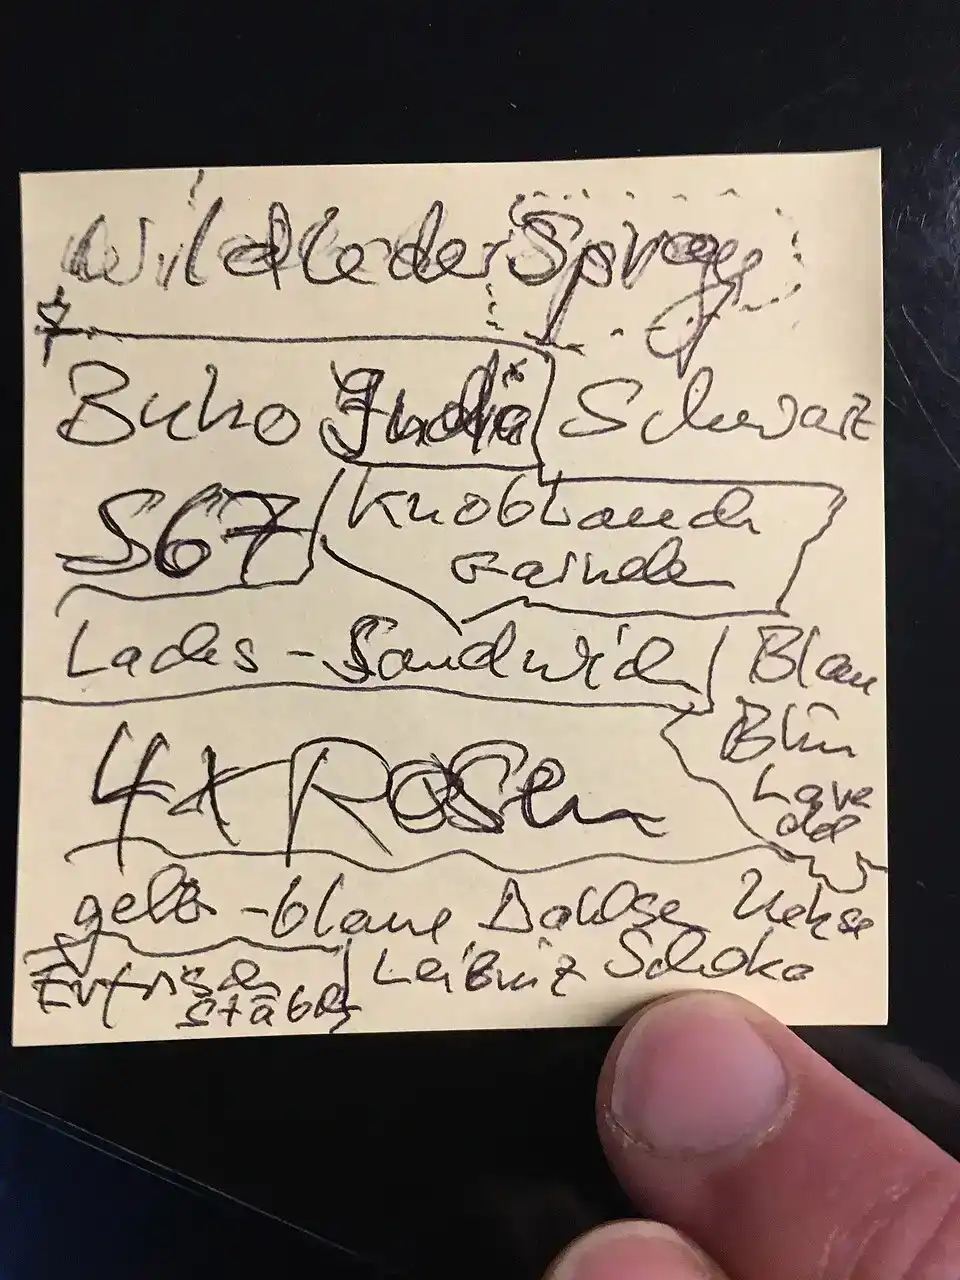 Wildleder Spray
Buko India Schwarz
S67 Knoblauch
Garnelen
Lachs-Sandwich Blau
Blüm
Lave
del
4x Rosen
gelb-blaue Dahlse Kekse
Erfrisch Leibniz Schoko
stäbch